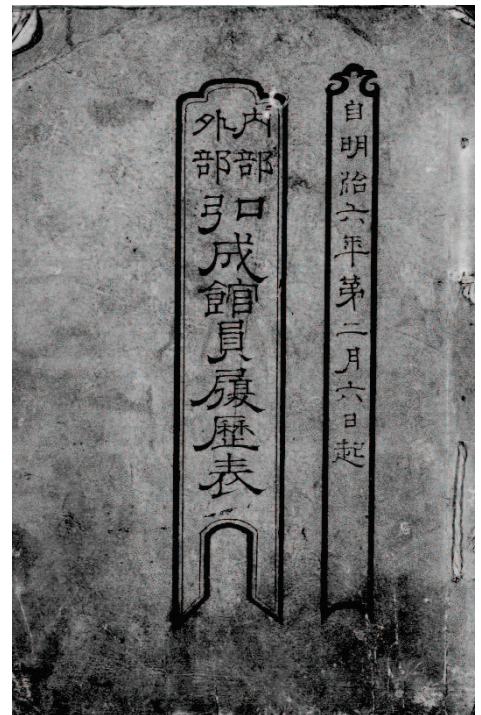 自明治六年第二月六日起
内部
外部
弘成館員履歴表